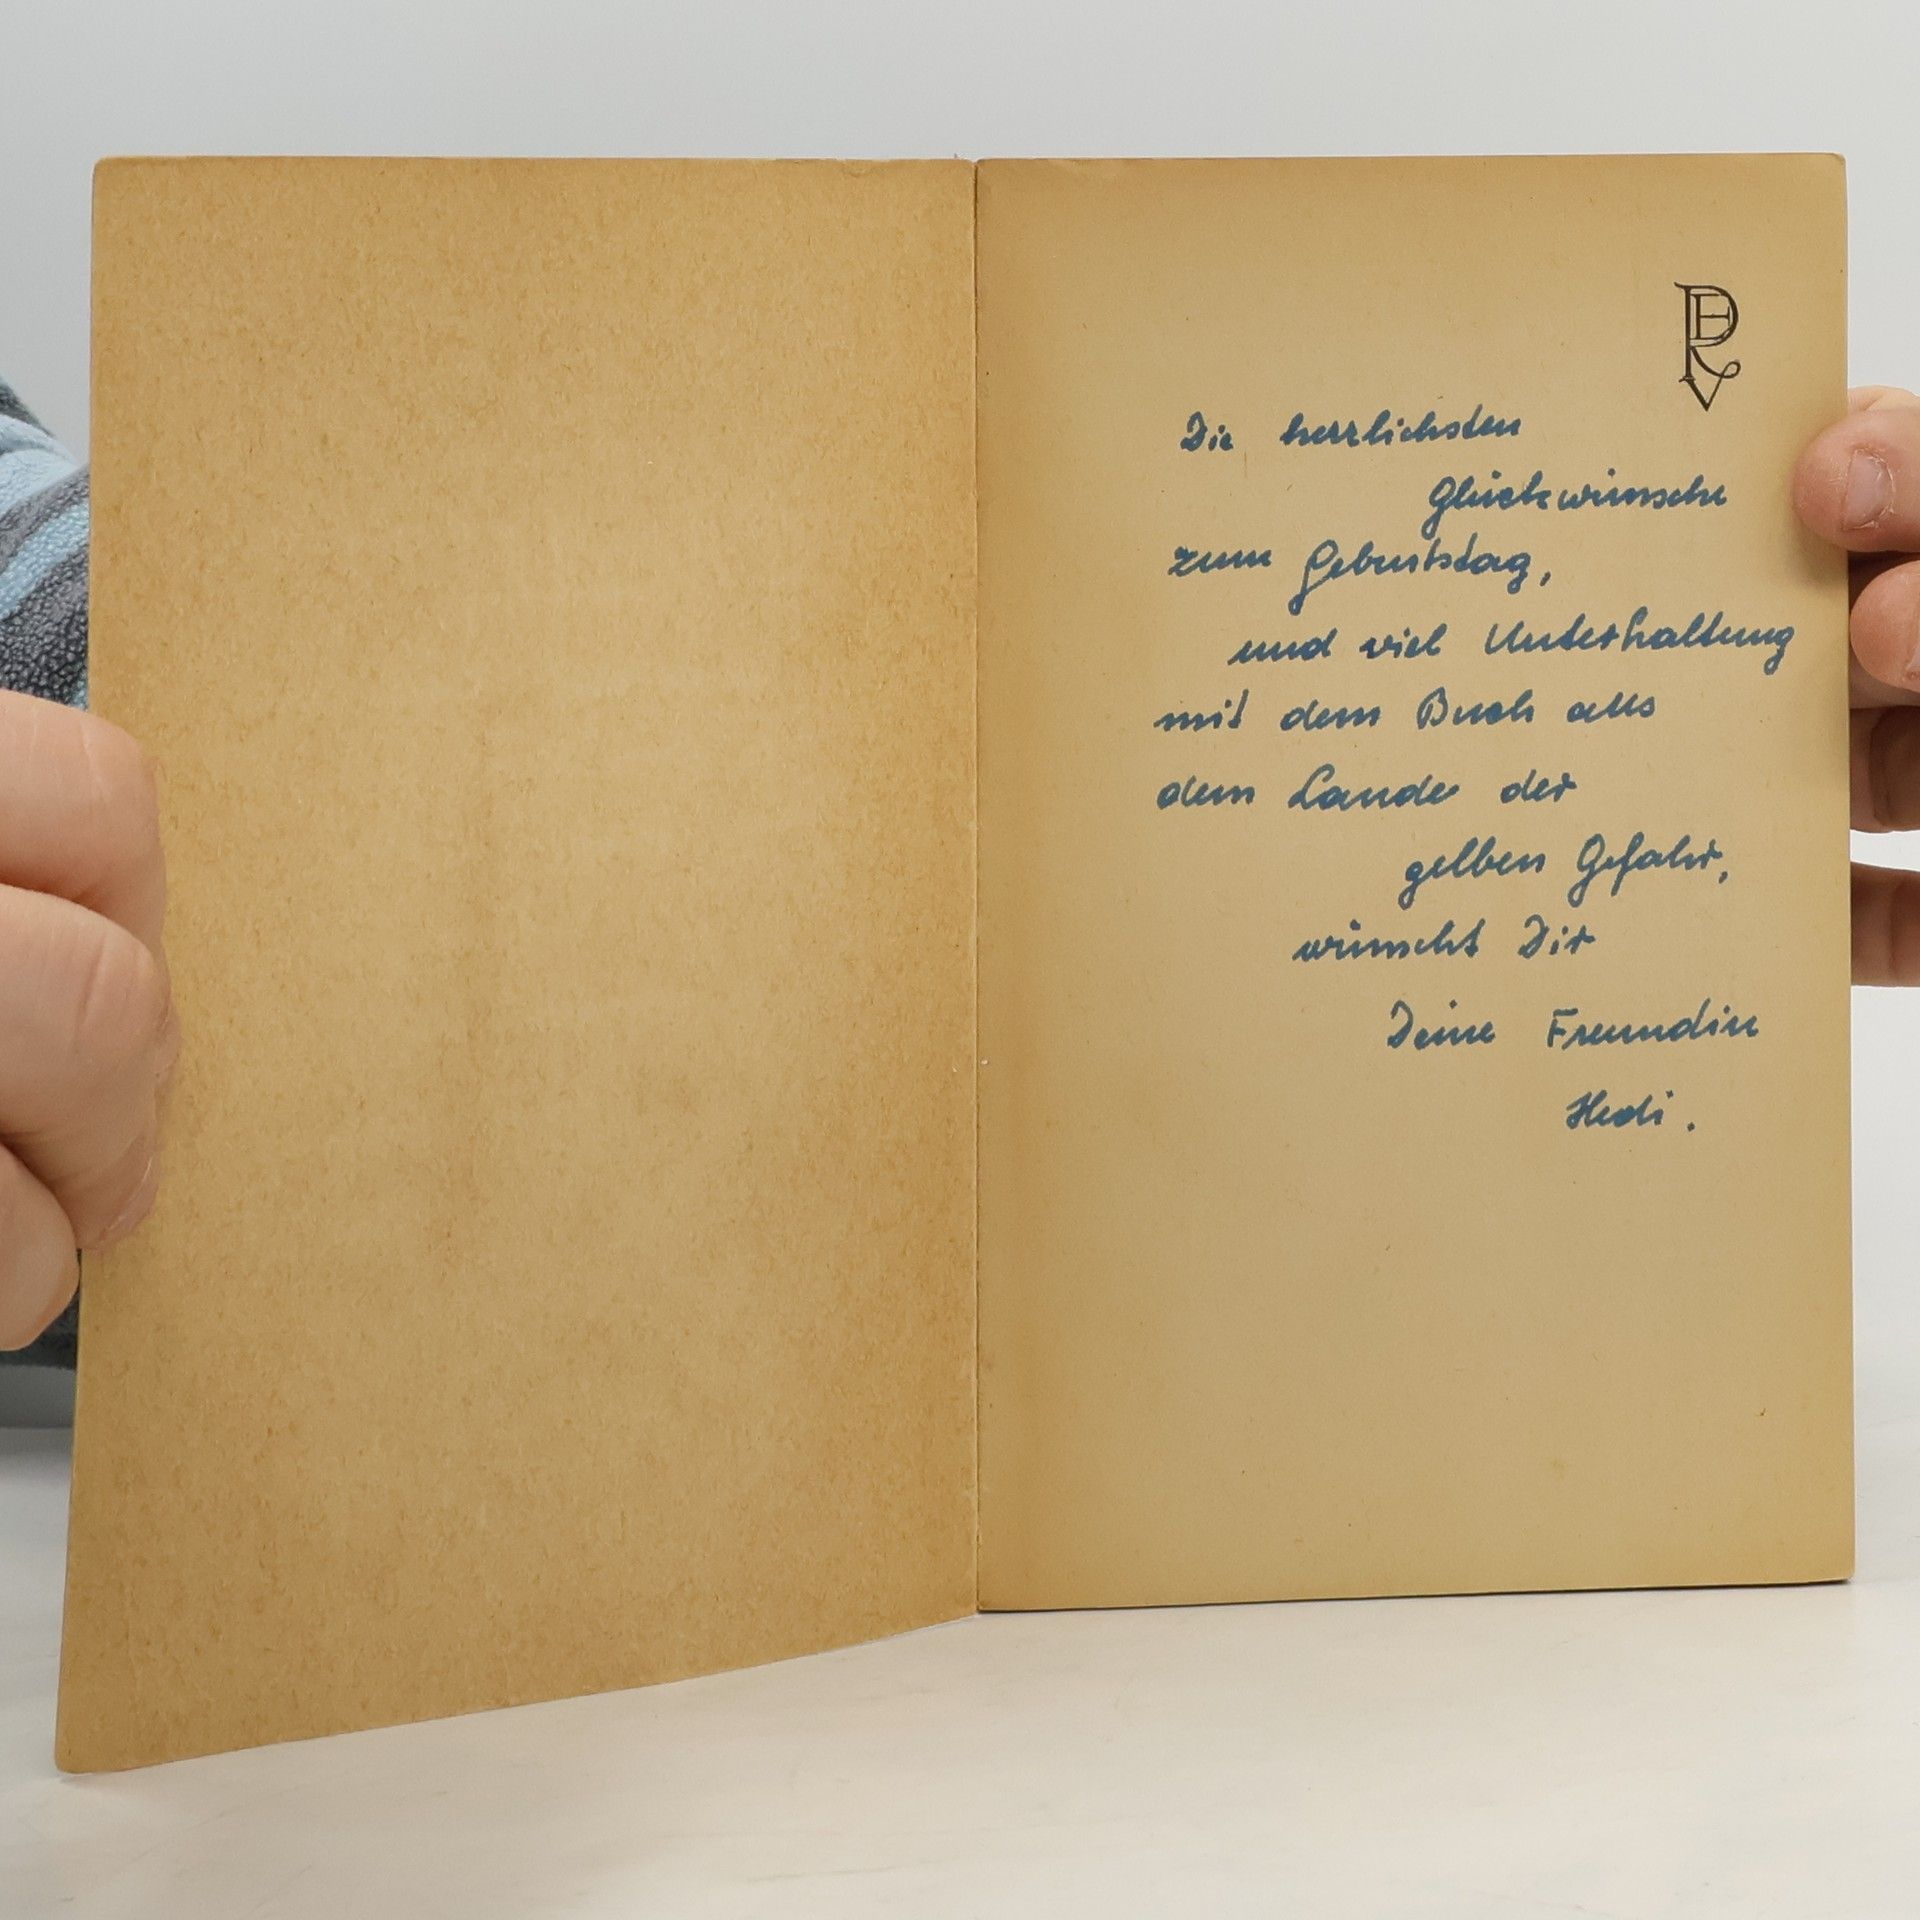 Die herrlichsten
Glückwünsche
zum Geburtstag,
und viel Unterhaltung
mit dem Buch aus
dem Lande der
gelben Gefahr,
wünscht Dir
Deine Freundin
Hedi.